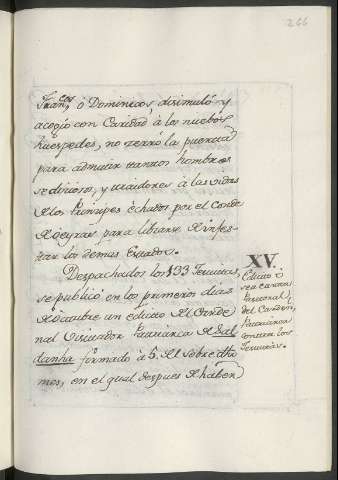 266
Fran.cos ó Dominicos, disimuló y
acogió con Caridad à los nuebos
huespedes, no cerró la puerta
para admitir tantos hombres
sediciosos, y traidores à las vidas
de los Principes èchados por el Conde
de Oeyras para librarse de infes-
tar los demas Estados.
Despachados los 133 Jesuitas,
se publicó en los primeros dias
de Octubre un edicto del Carde
nal Visitador Patriarca de Sal
danha formado à 5. del sobre dho
mes, en el qual despues de haber
XV.
Edicto ó
sea carta
Pastoral
del Carden.l
Patriarca
contra los
Jesuitas.